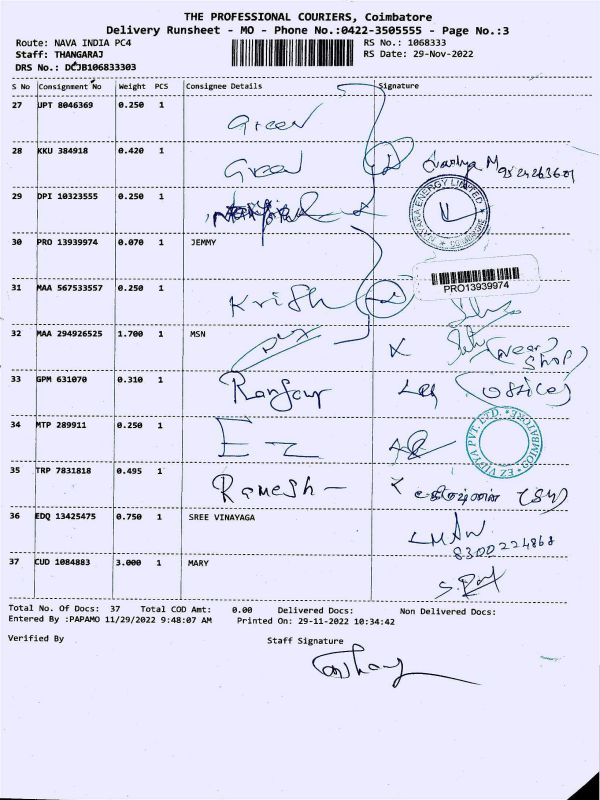 THE PROFESSIONAL COURIERS, Coimbatore
Delivery Runsheet - MO - Phone No.:0422-3505555 - Page No.:3
Route: NAVA INDIA PC4
RS No.: 1068333
Staff: THANGARAJ
RS Date: 29-Nov-2022
DRS No.: DCJB106833303
S No Consignment No Weight PCS Consignee Details Signature
27 UPT 8046369 0.250 1 Green
28 KKU 384918 0.420 1 Green
29 DPI 10323555 0.250 1
30 PRO 13939974 0.070 1 JEMMY
PRO13939974
31 MAA 567533557 0.250 1 Krish
32 MAA 294926525 1.700 1 MSN (Near
Shop)
33 GPM 631070 0.310 1 (office)
34 MTP 289911 0.250 1 EZ
EZ VIDYA PVT. LTD. COIMBATORE
35 TRP 7831818 0.495 1 Ramesh
36 EDQ 13425475 0.750 1 SREE VINAYAGA
8300224868
37 CUD 1084883 3.000 1 MARY
Total No. Of Docs: 37 Total COD Amt: 0.00 Delivered Docs: Non Delivered Docs:
Entered By :PAPAMO 11/29/2022 9:48:07 AM Printed On: 29-11-2022 10:34:42
Verified By Staff Signature